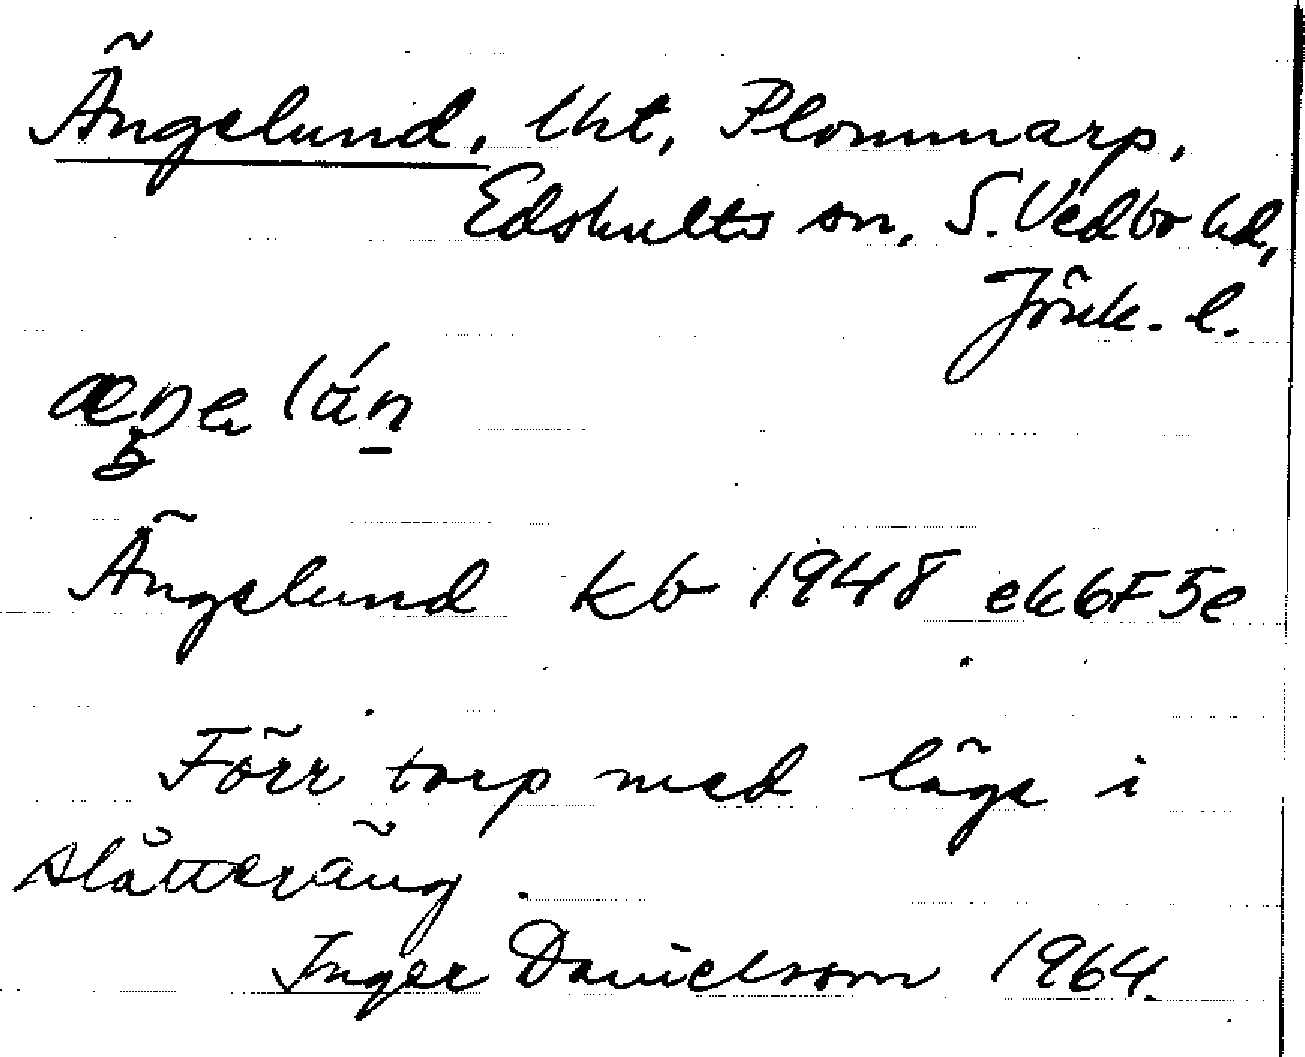 Ängelund, lht, Plommarp,
Edshults sn, S. Vedbo hd,
Jönk. l.
Ängelund kb 1948 ek6F5e
Förr torp med läge i
slåtteräng.
Inger Danielsson 1964.